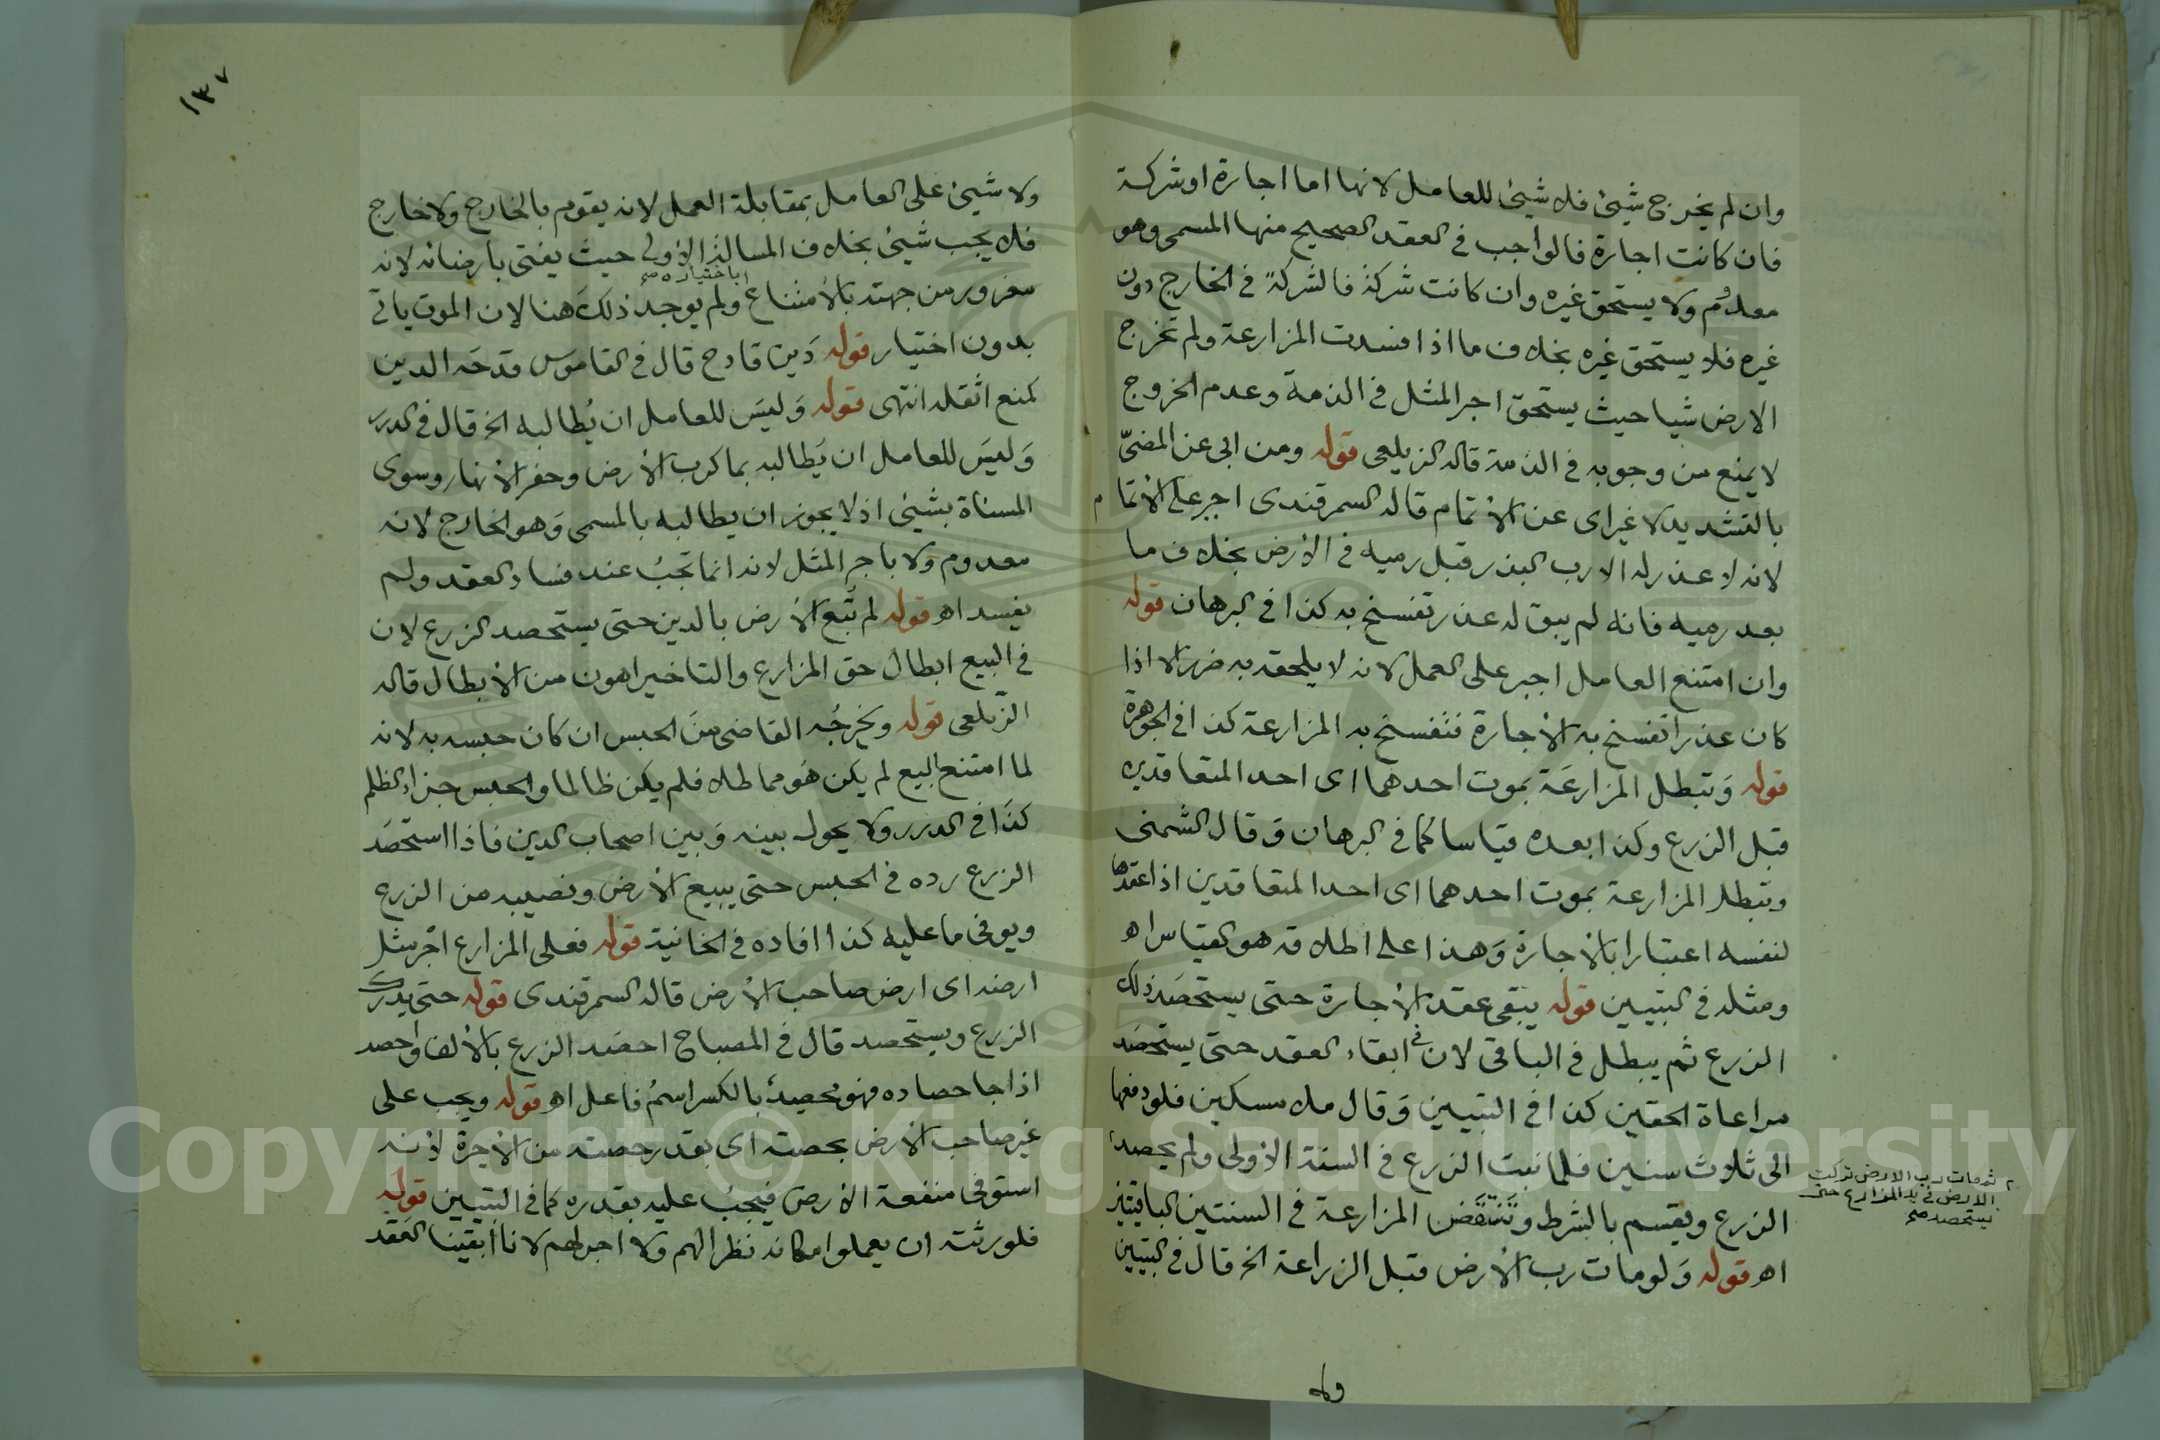 وان لم يخرج شيئ فلا شيئ للعامل لانها اما اجارة او شركة
فان كانت اجارة فالواجب في العقد الصحيح منها المسمى وهو
معدوم ولا يستحق غيره وان كانت شركة فالشركة في الخارج دون
غيره فلا يستحق غيره بخلاف ما اذا فسدت المزارعة ولم تخرج
الارض شيا حيث يستحق اجر المثل في الذمة وعدم الخروج
لا يمنع من وجوبه في الذمة قاله الزيلعي قوله ومن ابى عن المضيّ
بالتشديد لا غير اى عن الاتمام قاله السمرقندى اجبر على الاتمام
لانه لا عذر له الا رب البذر قبل رميه في الارض بخلاف ما
بعد رميه فانه لم يبق له عذر تفسخ به كذا في البرهان قوله
وان امتنع العامل اجبر على العمل لانه لا يلحقه به ضرر الا اذا
كان عذرا تفسخ به الاجارة فتفسخ به المزارعة كذا في الجوهرة
قوله وَتبطل المزارعَة بموت احدهما اى احد المتعاقدين
قبل الزرع وكذا بعده قياسا كما في البرهان وَقال الشمنى
وتبطل المزارعة بموت احدهما اى احد المتعاقدين اذا عقدها
لنفسه اعتبارا بالاجارة وَهذا على اطلاقه هو القياس اه
ومثله في التبيين قوله يبقى عقد الاجارة حتى يستحصَد ذلك
الزرع ثم يبطل في الباقى لان في ابقاء العقد حتى يستحصَد
مراعاة الحقين كذا في التبيين وَقال ملا مسكين فلو دفعها
الى ثلاث سنين فلما نبت الزرع في السنة الاولى ولم يحصد
ثم مات رب الارض تركت
الارض في يد المزارع حتى
يستحصد صح
الزرع ويقسم بالشرط وَتَنتقَض المزارعة في السنتين الباقيتين
اه قوله وَلو مات رب الارض قبل الزراعة الخ قال في التبيين
ولا
١٣٧
ولا شيئ على العامل بمقابلة العمل لانه يقوم بالخارج ولا خارج
فلا يجب شيئ بخلاف المسالة الاولى حيث يفتى بارضائه لانه
باختياره صح
مغرور من جهته بالامتناع ولم يوجد ذلك هنا لان الموت ياتى
بدون اختيار قوله دَين قادح قال في القاموس قدحَه الدين
كمنع اثقله انتهى قوله وَليسَ للعامل ان يُطالبه الخ قال في الدرر
وَليسَ للعامل ان يُطالبه بما كرب الارض وحفر الانهار وسوى
المسناة بشيئ اذ لا يجوز ان يطالبه بالمسمى وَهو الخارج لانه
معدوم ولا باجر المثل لانه انما يجبُ عند فساد العقد ولم
يفسد اه قوله لم تُبع الارض بالدين حتى يستحصد الزرع لان
في البيع ابطال حق المزارع والتاخير اهون من الابطال قاله
الزيلعى قوله ويخرجُه القاضى منَ الحبس ان كان حبسه به لانه
لما امتنع البيع لم يكن هَو مماطلا فلم يكن ظالما والحبس جزاء الظلم
كذَا في الدرر ولا يحول بينه وَبين اصحاب الدين فاذا استحصَد
الزرع رده في الحبس حتى يبيع الارض ونصيبه من الزرع
ويوفى ما عليه كذا افاده في الخانية قوله فعلى المزارع اجر مثل
ارضه اى ارض صاحب الارض قاله السمرقندى قوله حتى يدرك
الزرع ويستحصد قال في المصباح احصَد الزرع بالالف واحصد
اذا جا حصاده فهو محصِدٌ بالكسر اسمُ فاعل اه قوله ويجب على
غير صاحب الارض بحصته اى بقدر حصته من الاجرة لانه
استوفى منفعة الارض فيجبُ عليه بقدره كما في التبيين قوله
فلورثته ان يعملوا مكانه نظرا لهم ولا اجر لهم لانا ابقينا العقد
Copyright © King Saud University